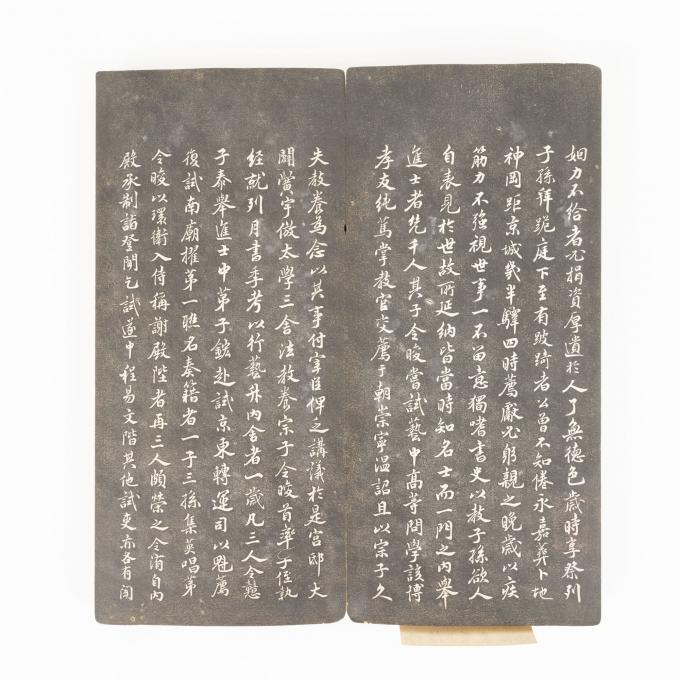 姻力不給者尤捐資厚遺於人了無德色歲時享祭列
子孫拜跪庭下至有跛踦者公曾不知倦永嘉葬卜地
神岡距京城幾半驛四時薦獻尤躬親之晚歲以疾
筋力不強視世事一不留意獨嗜書史以教子孫欲人
自表見於世故所延納皆當時知名士而一門之內舉
進士者先千人其子令晙嘗試藝中高等問學該博
孝友純篤掌教官交薦于朝崇寧溫詔且以宗子久
失教養為念以其事付宰臣俾之講議於是宮邸大
闢黌宇倣太學三舍法教養宗子令晙首率子侄執
經就列月書季考以行藝升內舍者一歲凡三人令
子泰舉進士中第子鉱赴試京東轉運司以魁薦
復試南廟擢第一聯名奏籍者一子三孫集英唱第
令晙以環衛入侍稱謝殿陛者再三人頗榮之令自內
殿承制詣登聞乞試遂中程易文階其他試吏亦各有聞